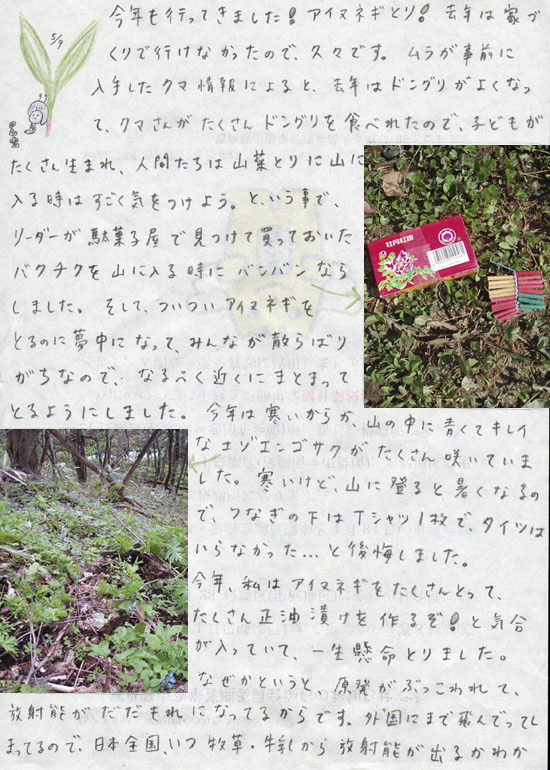 5/9
今年も行ってきました!アイヌネギとり!去年は家づ
くりで行けなかったので、久々です。ムラが事前に
入手したクマ情報によると、去年はドングリがよくなっ
て、クマさんがたくさんドングリを食べれたので、子どもが
たくさん生まれ、人間たちは山菜とりに山に
入る時はすごく気をつけよう。という事で、
リーダーが駄菓子屋で見つけて買っておいた
バクチクを山に入る時にバンバンなら
しました。そして、ついついアイヌネギを
とるのに夢中になって、みんなが散らばり
がちなので、なるべく近くにまとまって
とるようにしました。
牡丹紅炮
今年は寒いからか、山の中に青くてキレイ
なエゾエンゴサクがたくさん咲いていま
した。寒いけど、山に登ると暑くなるの
で、つなぎの下はTシャツ1枚で、タイツは
いらなかった…と後悔しました。
今年、私はアイヌネギをたくさんとって、
たくさん正油漬けを作るぞ!と気合
が入っていて、一生懸命とりました。
なぜかというと、原発がぶっこわれて、
放射能がだだもれになってるからです。外国にまで飛んでってし
まってるので、日本全国、いつ牧草・牛乳から放射能が出るかわか